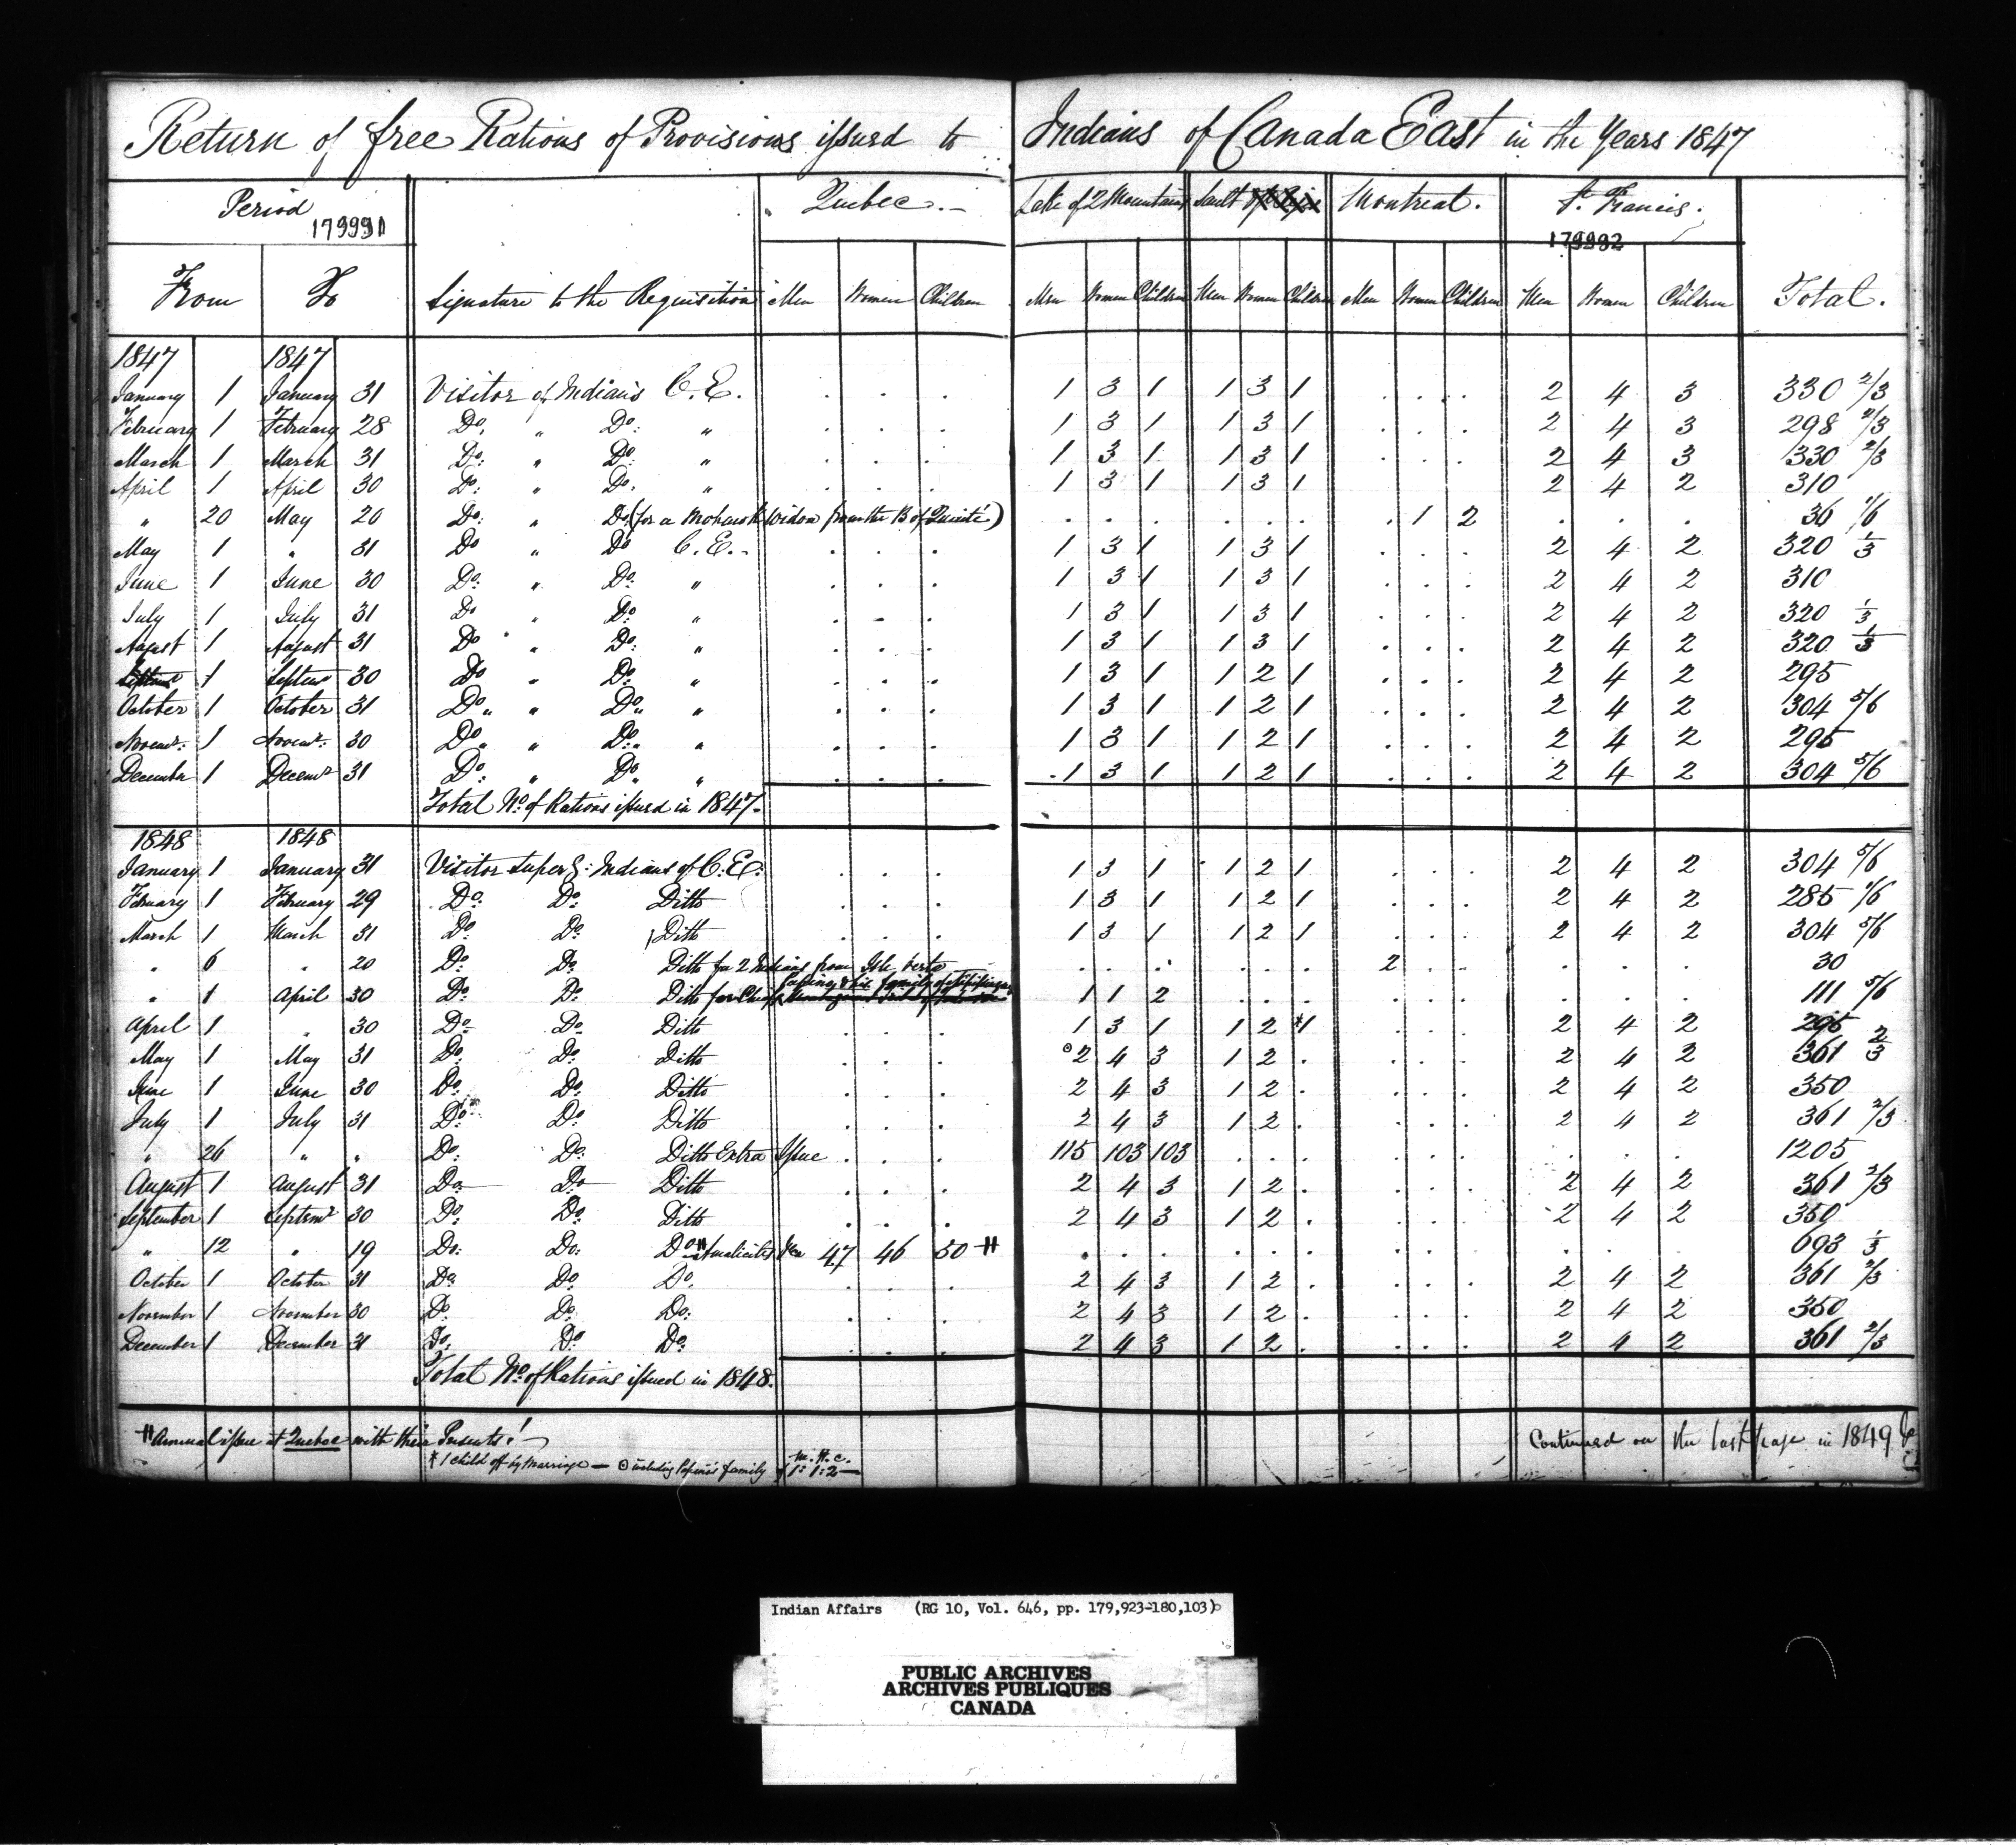 Return of free Rations of Provisions issued to Indians of Canada East in the Years 1847
Period Quebec. Lake of 2 Mountains Sault Montreal. St. Francis.
179991 179992
From To Signature to the Requisition Men Women Children Men Women Children Men Women Children Men Women Children Men Women Children Total.
1847 1847
January 1 January 31 Visitor of Indians C. E. . . . 1 3 1 1 3 1 . . . 2 4 3 330 2/3
February 1 February 28 Do. " Do: " . . . 1 3 1 1 3 1 . . . 2 4 3 298 2/3
March 1 March 31 Do: " Do: " . . . 1 3 1 1 3 1 . . . 2 4 3 330 2/3
April 1 April 30 Do: " Do. " . . . 1 3 1 1 3 1 . . . 2 4 2 310
" 20 May 20 Do: " Do. (for a Mohawk Widow from the B of Quinté) . . . . . . . 1 2 . . . 36 1/6
May 1 " 31 Do " Do C. E. . . . 1 3 1 1 3 1 . . . 2 4 2 320 1/3
June 1 June 30 Do. " Do. " . . . 1 3 1 1 3 1 . . . 2 4 2 310
July 1 July 31 Do " Do. " . . . 1 3 1 1 3 1 . . . 2 4 2 320 1/3
August 1 August 31 Do " Do. " . . . 1 3 1 1 3 1 . . . 2 4 2 320 1/3
Septemr 1 Septemr 30 Do " Do. " . . . 1 3 1 1 2 1 . . . 2 4 2 295
October 1 October 31 Do " Do " . . . 1 3 1 1 2 1 . . . 2 4 2 304 5/6
Novemr. 1 Novemr. 30 Do " Do. " . . . 1 3 1 1 2 1 . . . 2 4 2 295
December 1 Decemr 31 Do. " Do. " . . . 1 3 1 1 2 1 . . . 2 4 2 304 5/6
Total No. of Rations issued in 1847.
1848 1848
January 1 January 31 Visitor Super Indians of C. E. . . . 1 3 1 1 2 1 . . . 2 4 2 304 5/6
February 1 February 29 Do. Do. Ditto . . . 1 3 1 1 2 1 . . . 2 4 2 285 1/6
March 1 March 31 Do. Do. Ditto . . . 1 3 1 1 2 1 . . . 2 4 2 304 5/6
" 6 " 20 Do. Do. Ditto for 2 Indians from Isle Verte . . . . . . 2 . . . . . 30
" 1 April 30 Do. Do. Ditto for Chief & his family of 1 1 2 . . . . . . . . . 111 5/6
April 1 " 30 Do. Do. Ditto . . . 1 3 1 1 2 *1 . . . 2 4 2 295
May 1 May 31 Do. Do. Ditto . . . ⊙2 4 3 1 2 . . . . 2 4 2 361 2/3
June 1 June 30 Do. Do. Ditto . . . 2 4 3 1 2 . . . . 2 4 2 350
July 1 July 31 Do. Do. Ditto . . . 2 4 3 1 2 . . . . 2 4 2 361 2/3
" 26 " " Do. Do. Ditto Extra Issue . . . 115 103 103 . . . . . . . . . 1205
August 1 August 31 Do. Do. Ditto . . . 2 4 3 1 2 . . . . 2 4 2 361 2/3
September 1 Septemr 30 Do. Do. Ditto . . . 2 4 3 1 2 . . . . 2 4 2 350
" 12 " 19 Do. Do. Do. # Amalicites 47 46 50 # . . . . . . . . . . . . 693 1/3
October 1 October 31 Do. Do. Do. . . . 2 4 3 1 2 . . . . 2 4 2 361 2/3
November 1 November 30 Do. Do. Do. . . . 2 4 3 1 2 . . . . 2 4 2 350
December 1 December 31 Do. Do. Do. . . . 2 4 3 1 2 . . . . 2 4 2 361 2/3
Total No. of Rations issued in 1848.
# Annual issue at Quebec with their Presents!
* 1 child off by Marriage — ⊙ including family of 1: 1: 2 —
Continued on the last page in 1849
Indian Affairs (RG 10, Vol. 646, pp. 179,923-180,103)
PUBLIC ARCHIVES
ARCHIVES PUBLIQUES
CANADA